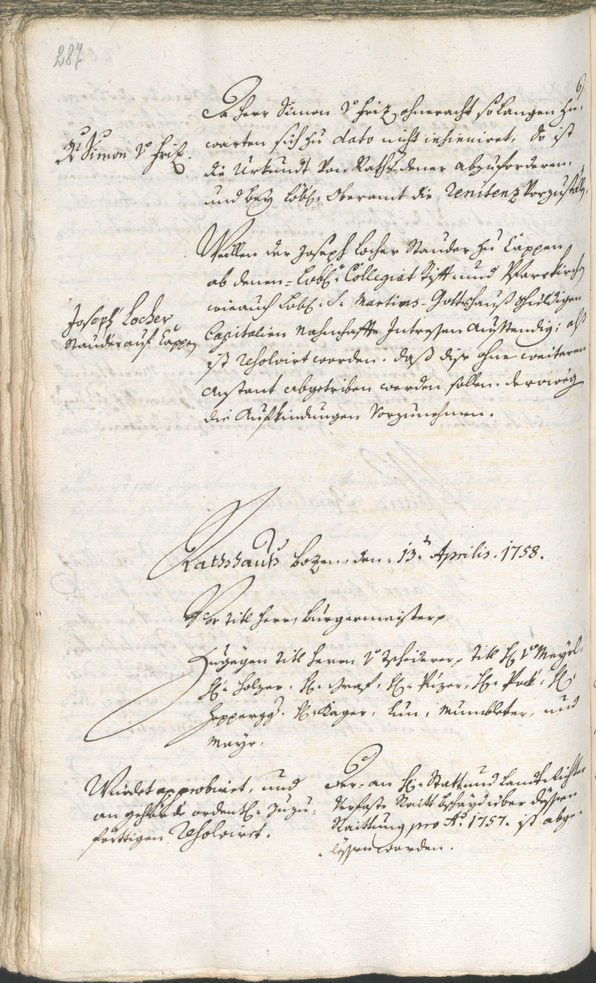 287
Hr. Simon v. Friz.
Herr Simon v. Friz, ohneracht so langen zu-
warten sich zu dato nicht insinuiret, so ist
die Urkundt von Rathsdiener abzuforderen,
und bey Löbl. Oberamt die Renitenz vorzustellen.
Joseph Locher
Stauder auf Cappen
Weillen der Joseph Locher Stauder zu Cappen
ab denen Löbl. Collegiat Stüfft und Pfarrkirchen
wie auch Löbl. S. Martins Gottshauß schuldigen
Capitalien nahmhaffte Interessen ausstendig; als
ist resolvirt worden, daß dise ohne weiteren
anstant abgetriben werden sollen, derowegen
die Aufkindungen vorzunehmen.
Rathshauß Bozen den 13ten Aprilis 1758.
Vor titl Herrn Burgermeister
Zugegen titl Herrn v. Tschiderer, titl H. v. Mayrl,
H. Holzer, H. Graf, H. Rizer, H. Pock, H.
H. Kager, Lun, Mumblter, und
Mayr.
Wurdet approbiret, und
an gehörde ordentl. zuzu-
förttigen resolviret.
Der an H. Statt und Landtrichter
verfaste Raitt bschayd über dessen
Raittung pro Ao. 1757. ist abge-
lesen worden.